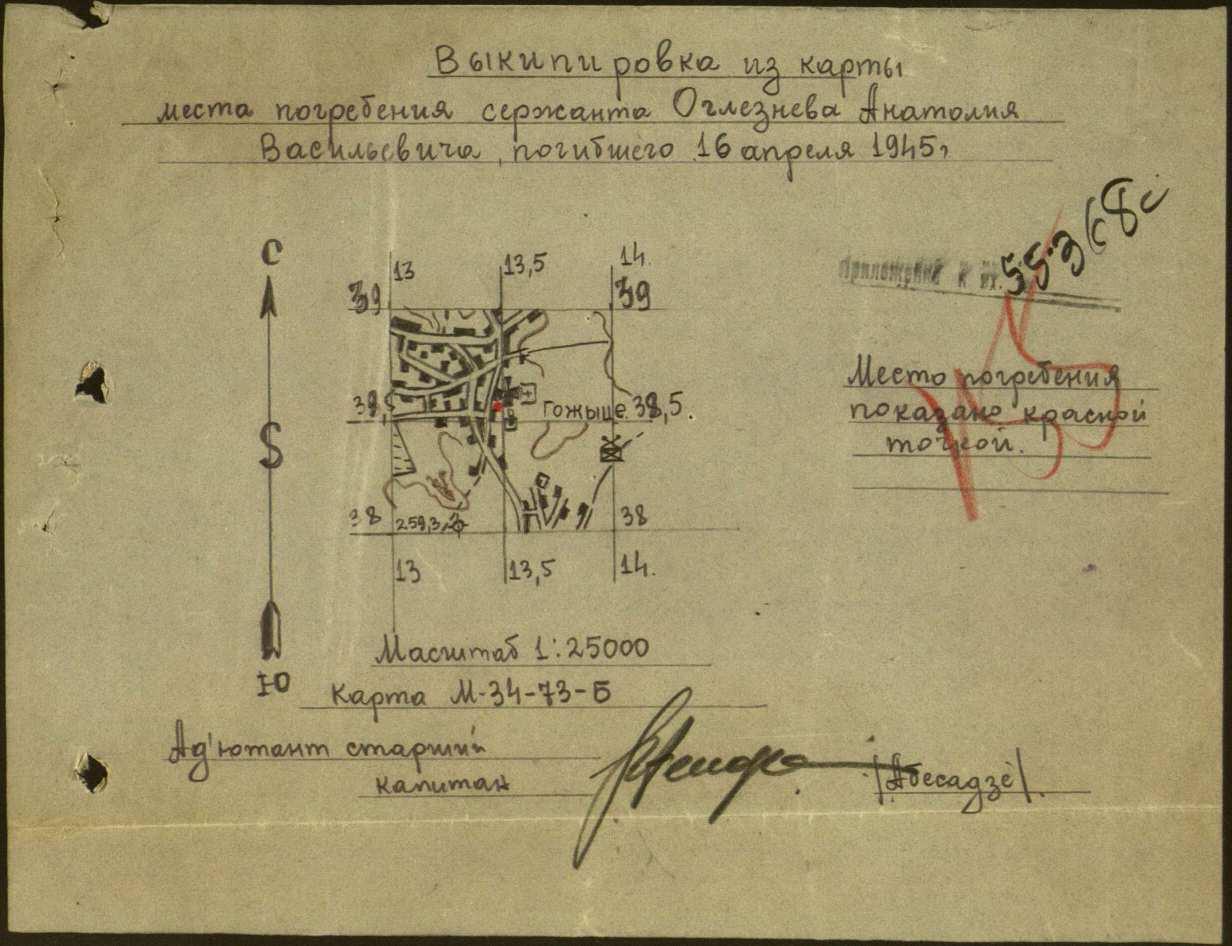 Выкипировка из карты
места погребения сержанта Оглезнева Анатолия
Васильевича, погибшего 16 апреля 1945г
55368с
Приложение к вх.
С
13 13,5 14.
39 39
Место погребения
показано красной
точкой.
38,5 Гожыце 38,5.
38 259,3 38
13 13,5 14.
Ю
Масштаб 1:25000
Карта М-34-73-Б
Ад'ютант старший
капитан
/Абесадзе/.